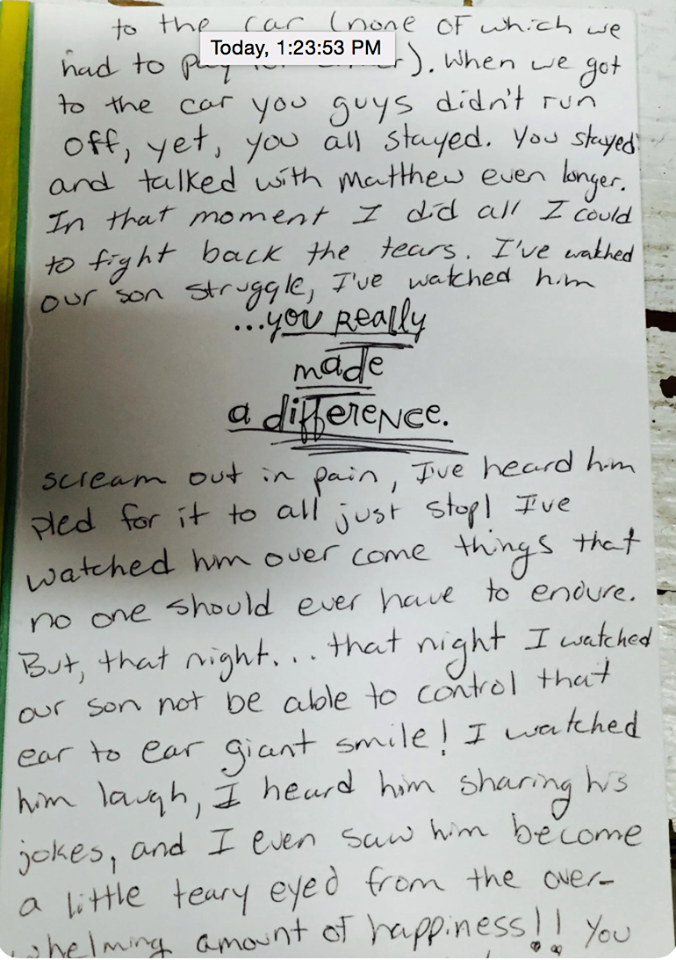 to the car (none of which we
Today, 1:23:53 PM
had to pay for either). When we got
to the car you guys didn't run
off, yet, you all stayed. You stayed
and talked with Matthew even longer.
In that moment I did all I could
to fight back the tears. I've watched
our son struggle, I've watched him
...you Really
made
a difference.
scream out in pain, I've heard him
pled for it to all just stop! I've
watched him over come things that
no one should ever have to endure.
But, that night... that night I watched
our son not be able to control that
ear to ear giant smile! I watched
him laugh, I heard him sharing his
jokes, and I even saw him become
a little teary eyed from the over-
whelming amount of happiness!! You